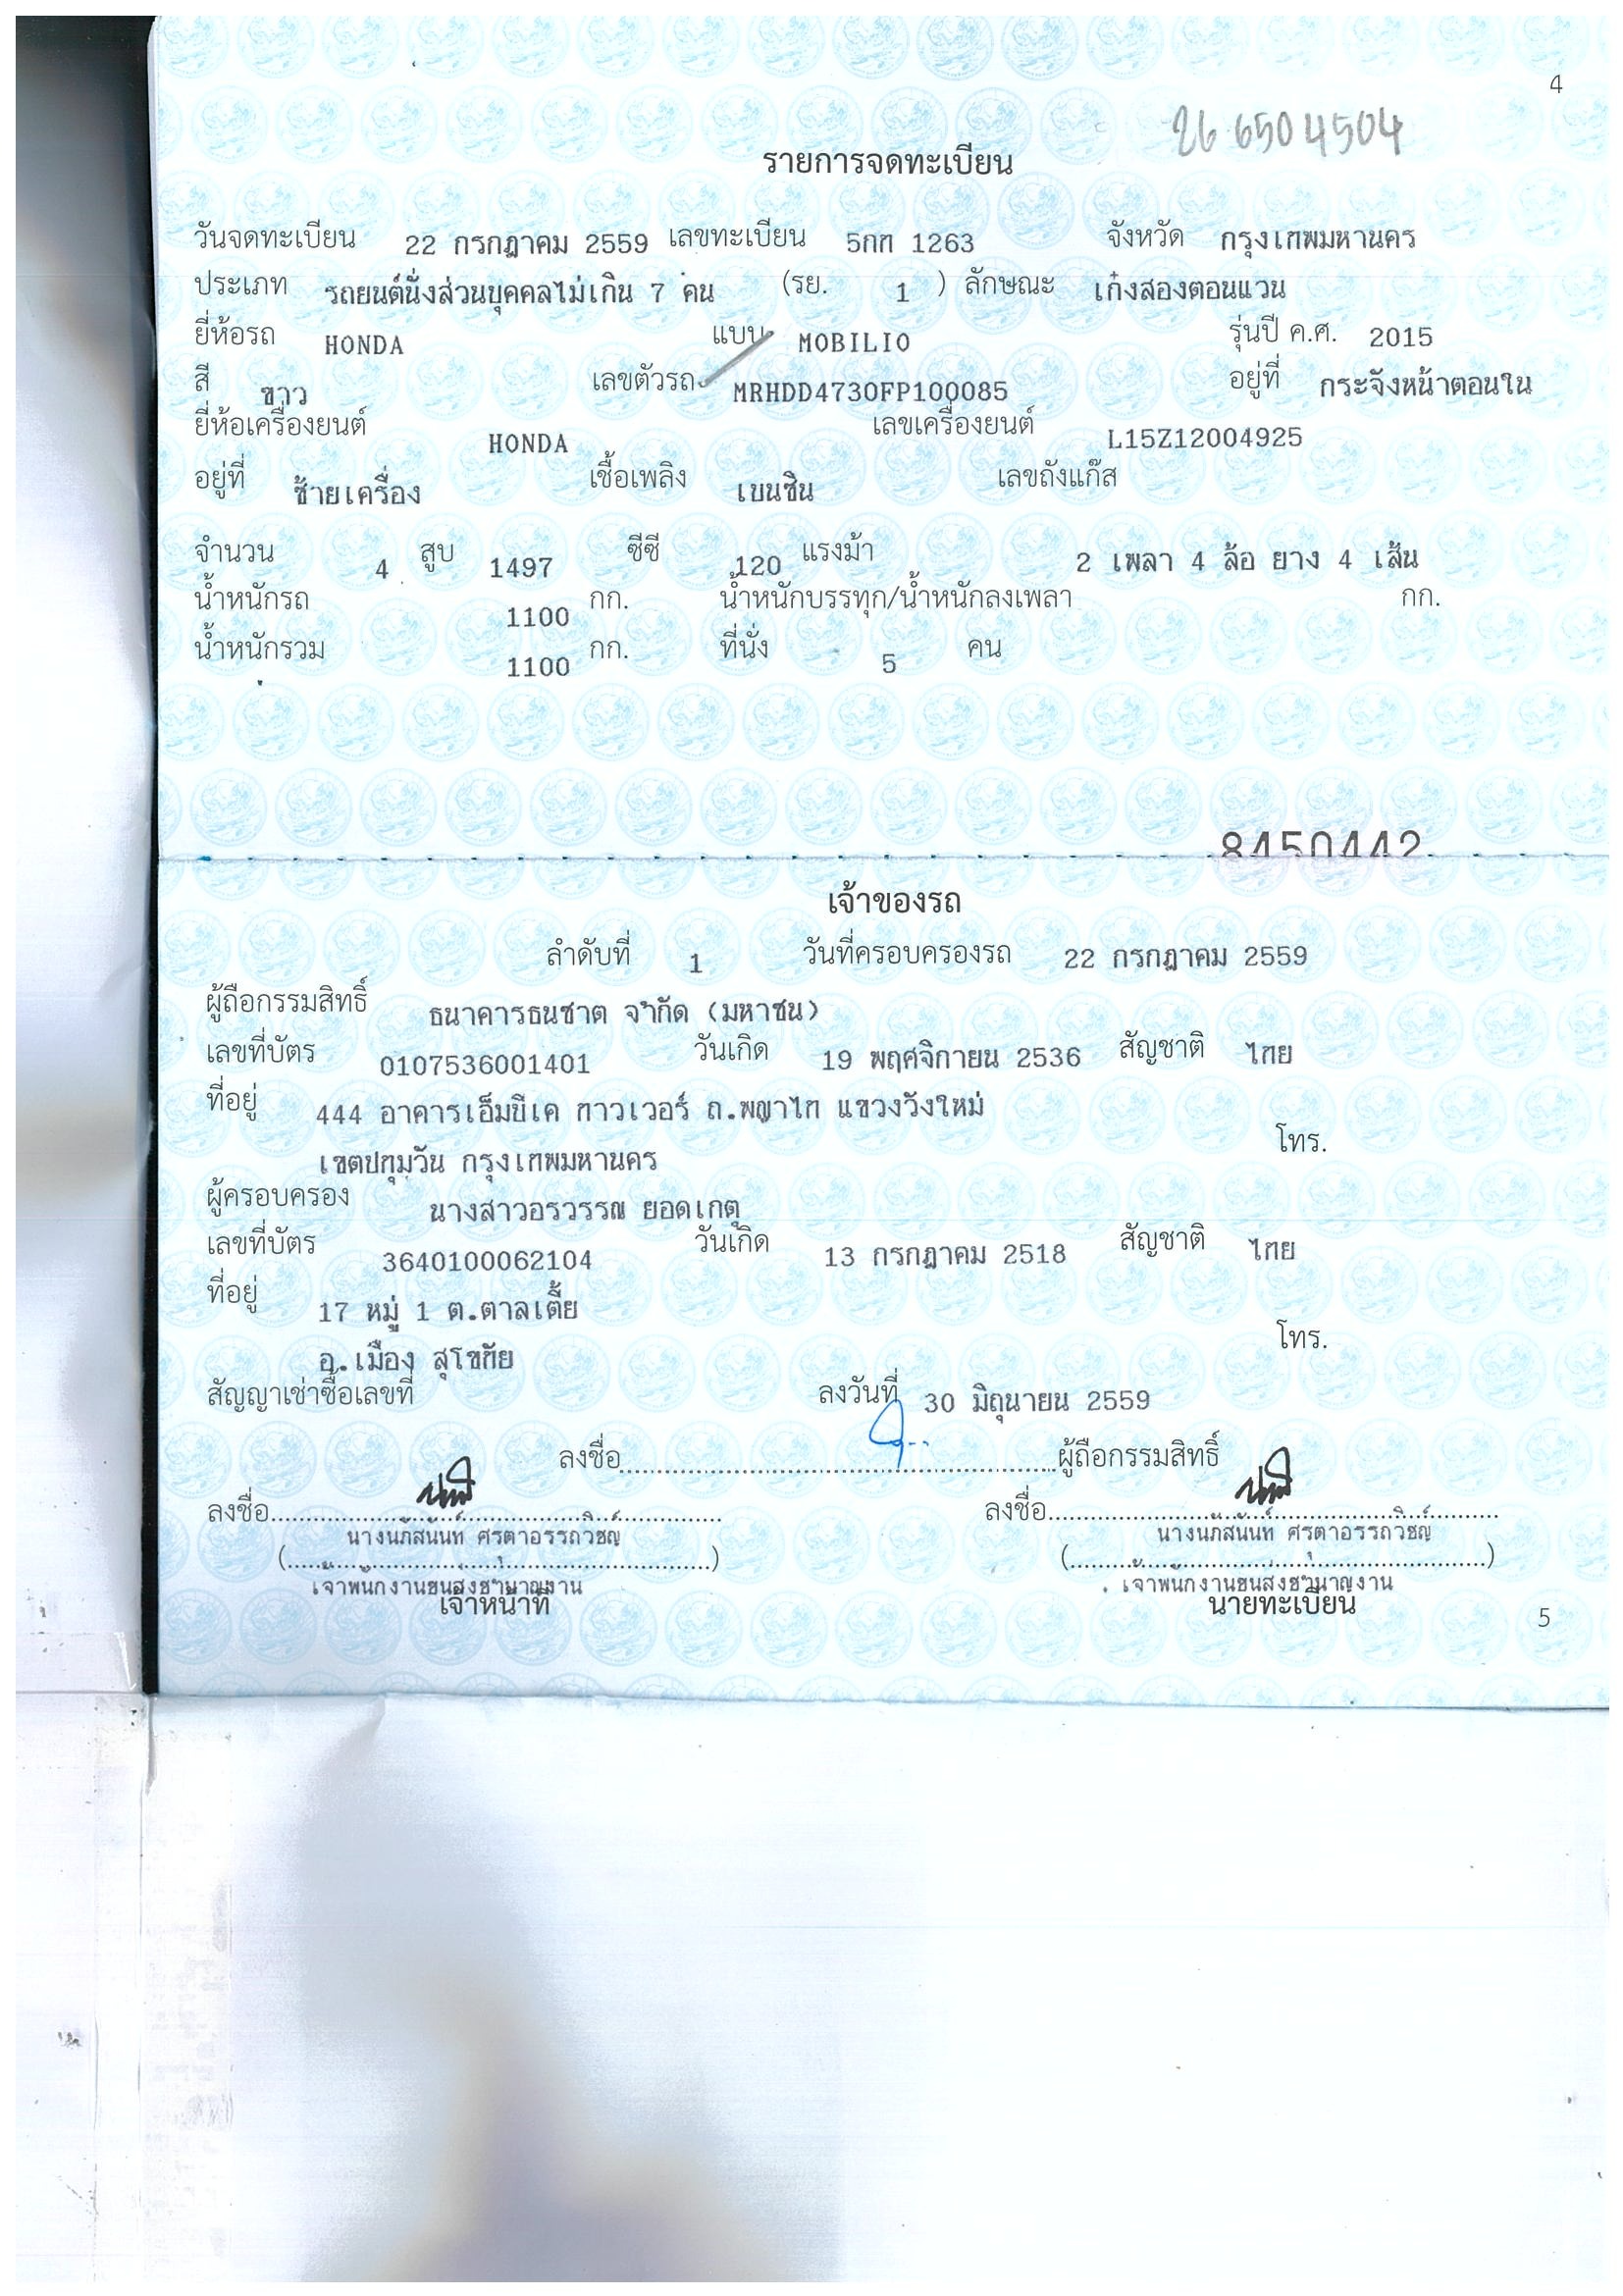 4
26 6504504
รายการจดทะเบียน
วันจดทะเบียน 22 กรกฎาคม 2559 เลขทะเบียน 5กก 1263 จังหวัด กรุงเทพมหานคร
ประเภท รถยนต์นั่งส่วนบุคคลไม่เกิน 7 คน (รย. 1 ) ลักษณะ เก๋งสองตอนแวน
ยี่ห้อรถ HONDA แบบ MOBILIO รุ่นปี ค.ศ. 2015
สี ขาว เลขตัวรถ MRHDD4730FP100085 อยู่ที่ กระจังหน้าตอนใน
ยี่ห้อเครื่องยนต์ HONDA เลขเครื่องยนต์ L15Z12004925
อยู่ที่ ซ้ายเครื่อง เชื้อเพลิง เบนซิน เลขถังแก๊ส
จำนวน 4 สูบ 1497 ซีซี 120 แรงม้า 2 เพลา 4 ล้อ ยาง 4 เส้น
น้ำหนักรถ 1100 กก. น้ำหนักบรรทุก/น้ำหนักลงเพลา กก.
น้ำหนักรวม 1100 กก. ที่นั่ง 5 คน
8450442
เจ้าของรถ
ลำดับที่ 1 วันที่ครอบครองรถ 22 กรกฎาคม 2559
ผู้ถือกรรมสิทธิ์ ธนาคารธนชาต จำกัด (มหาชน)
เลขที่บัตร 0107536001401 วันเกิด 19 พฤศจิกายน 2536 สัญชาติ ไทย
ที่อยู่ 444 อาคารเอ็มบีเค ทาวเวอร์ ถ.พญาไท แขวงวังใหม่
เขตปทุมวัน กรุงเทพมหานคร โทร.
ผู้ครอบครอง นางสาวอรวรรณ ยอดเกตุ
เลขที่บัตร 3640100062104 วันเกิด 13 กรกฎาคม 2518 สัญชาติ ไทย
ที่อยู่ 17 หมู่ 1 ต.ตาลเตี้ย
อ.เมือง สุโขทัย โทร.
สัญญาเช่าซื้อเลขที่ ลงวันที่ 30 มิถุนายน 2559
ลงชื่อ ผู้ถือกรรมสิทธิ์
ลงชื่อ ลงชื่อ
นางนภัสนันท์ ศรุตาอรรถวิชญ์ นางนภัสนันท์ ศรุตาอรรถวิชญ์
เจ้าพนักงานขนส่งชำนาญงาน เจ้าพนักงานขนส่งชำนาญงาน
เจ้าหน้าที่ นายทะเบียน
5